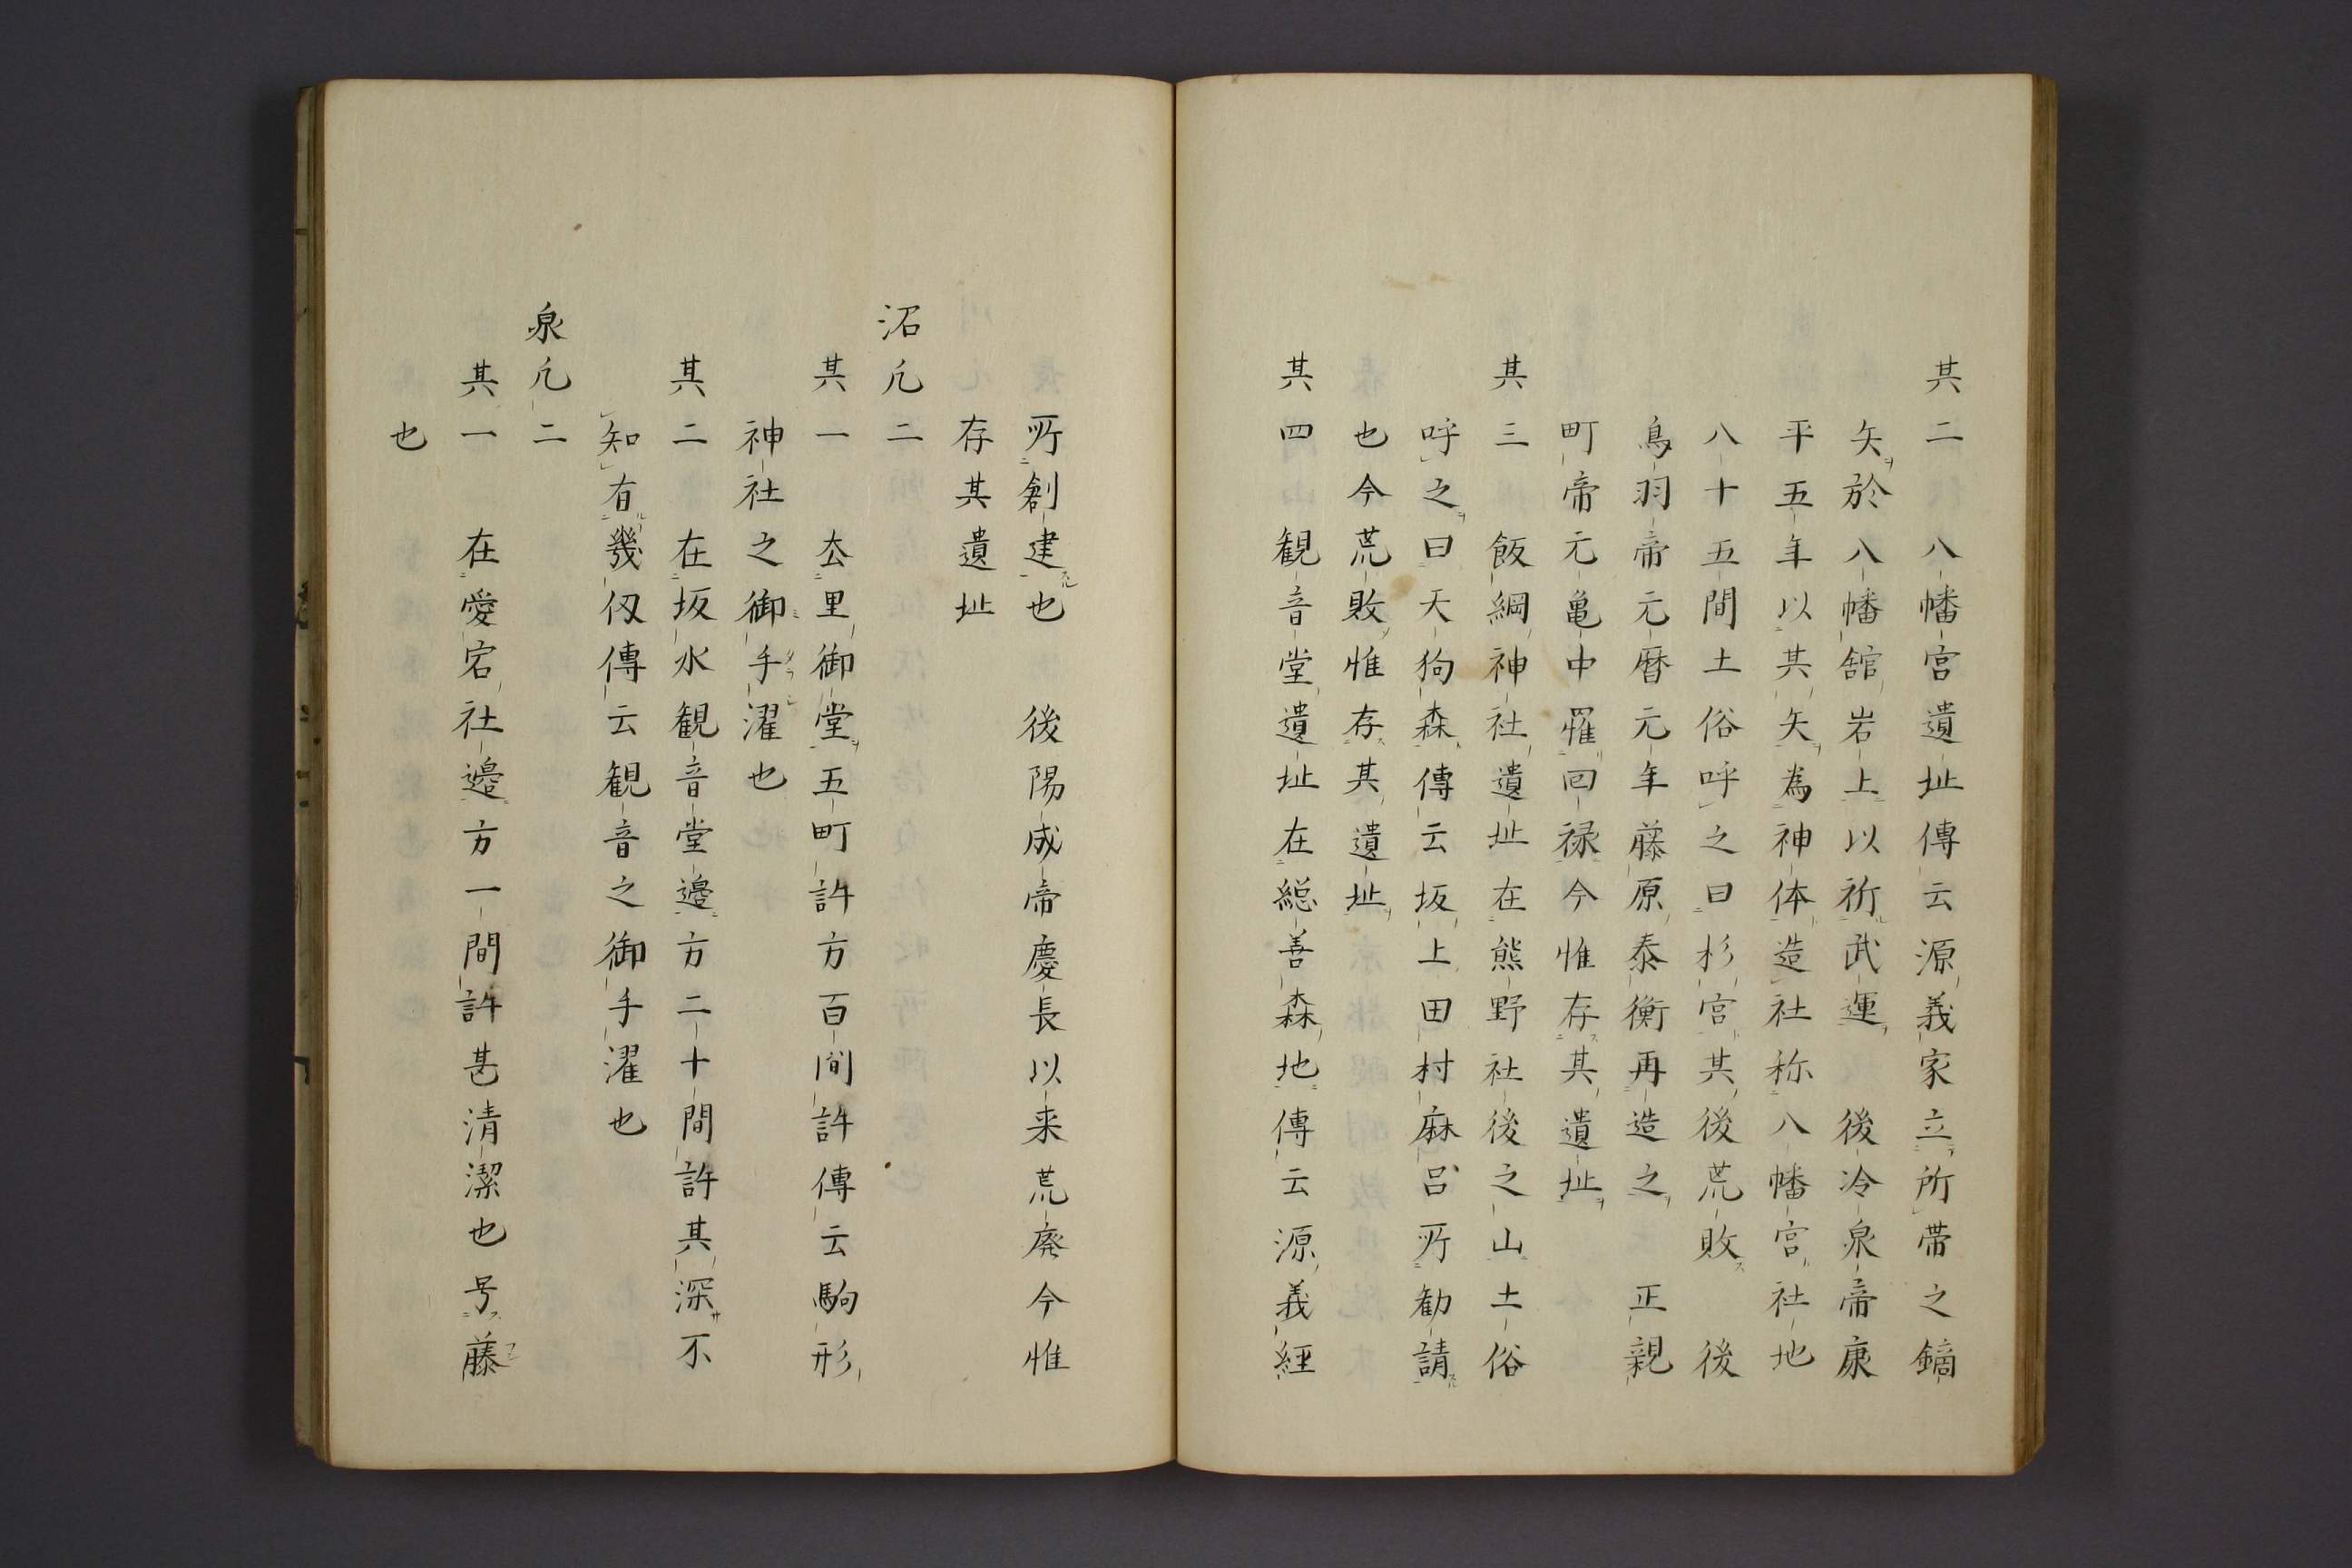 其二　八幡宮遺址傳云源義家立所帯之鏑
矢於八幡舘岩上以祈武運　後冷泉帝康
平五年以其矢為神体造社称八幡宮社地
八十五間土俗呼之曰杉宮其後荒敗　後
鳥羽帝元暦元年藤原泰衡再造之　正親
町帝元亀中罹回禄今惟存其遺址
其三　飯綱神社遺址在熊野社後之山土俗
呼之曰天狗森傳云坂上田村麻呂所勧請
也今荒敗惟存其遺址
其四　観音堂遺址在総善森地傳云源義経
所創建也　後陽成帝慶長以来荒廃今惟
存其遺址
沼凢二
其一　在里御堂五町許方百間許傳云駒形
神社之御手濯也
其二　在坂水観音堂邉方二十間許其深不
知有幾仭傳云観音之御手濯也
泉凢二
其一　在愛宕社邉方一間許甚清潔也号藤
也